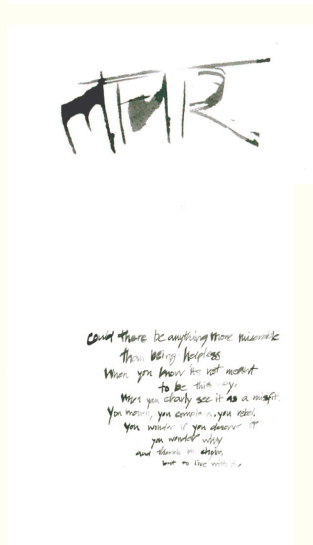 could there be anything more miserable
than being helpless
When you know its not meant
to be this way.
When you clearly see it as a misfit.
You mourn, you complain. you rebel.
you wonder if you deserve it
you wonder why
and there is
but to live with it.